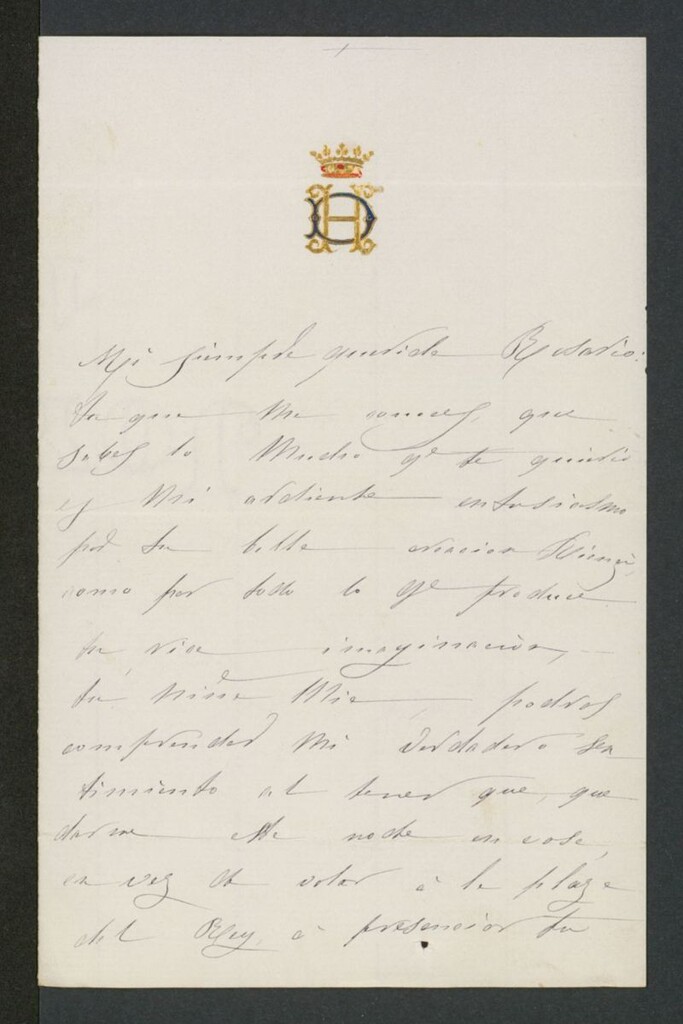 HD
Mi siempre querida Rosario:
Tu que me conoces, que
sabes lo mucho qe te quiero
y mi ardiente entusiasmo
por tu bella creacion Rienzi,
como por todo lo qe produce
tu rica imaginacion,
tu niña mia, podras
comprender mi verdadero sen
timiento al tener que, que
darme esta noche en casa,
en vez de volar à la plaza
del Rey, à presenciar tu